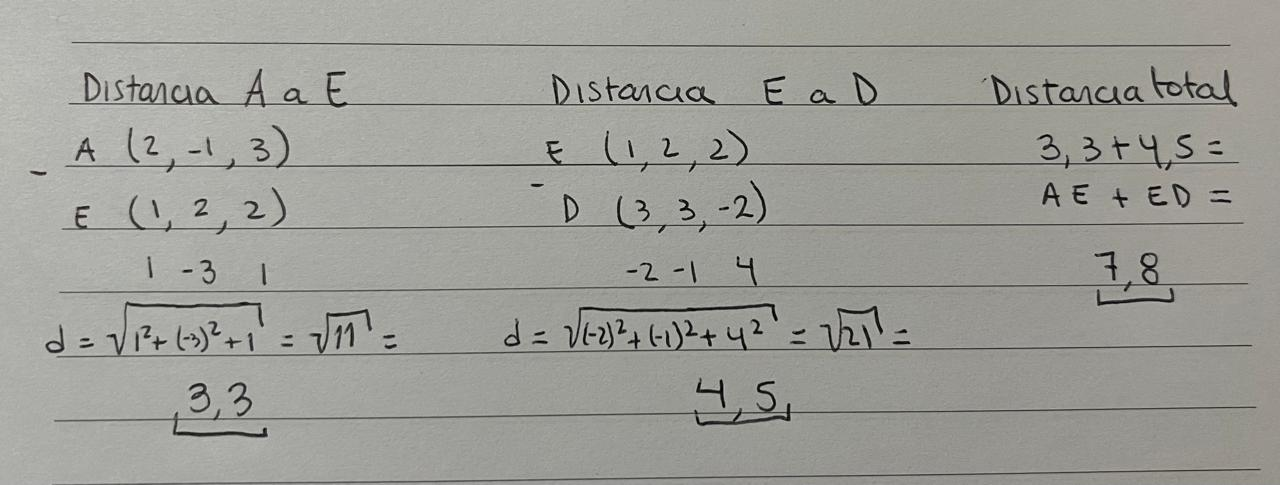 Distancia A a E
A (2, -1, 3)
-
E (1, 2, 2)
1 -3 1
d = √1²+(-3)²+1 = √11 =
3,3
Distancia E a D
E (1, 2, 2)
-
D (3, 3, -2)
-2 -1 4
d = √(-2)²+(-1)²+4² = √21 =
4,5
Distancia total
3,3+4,5=
AE + ED =
7,8